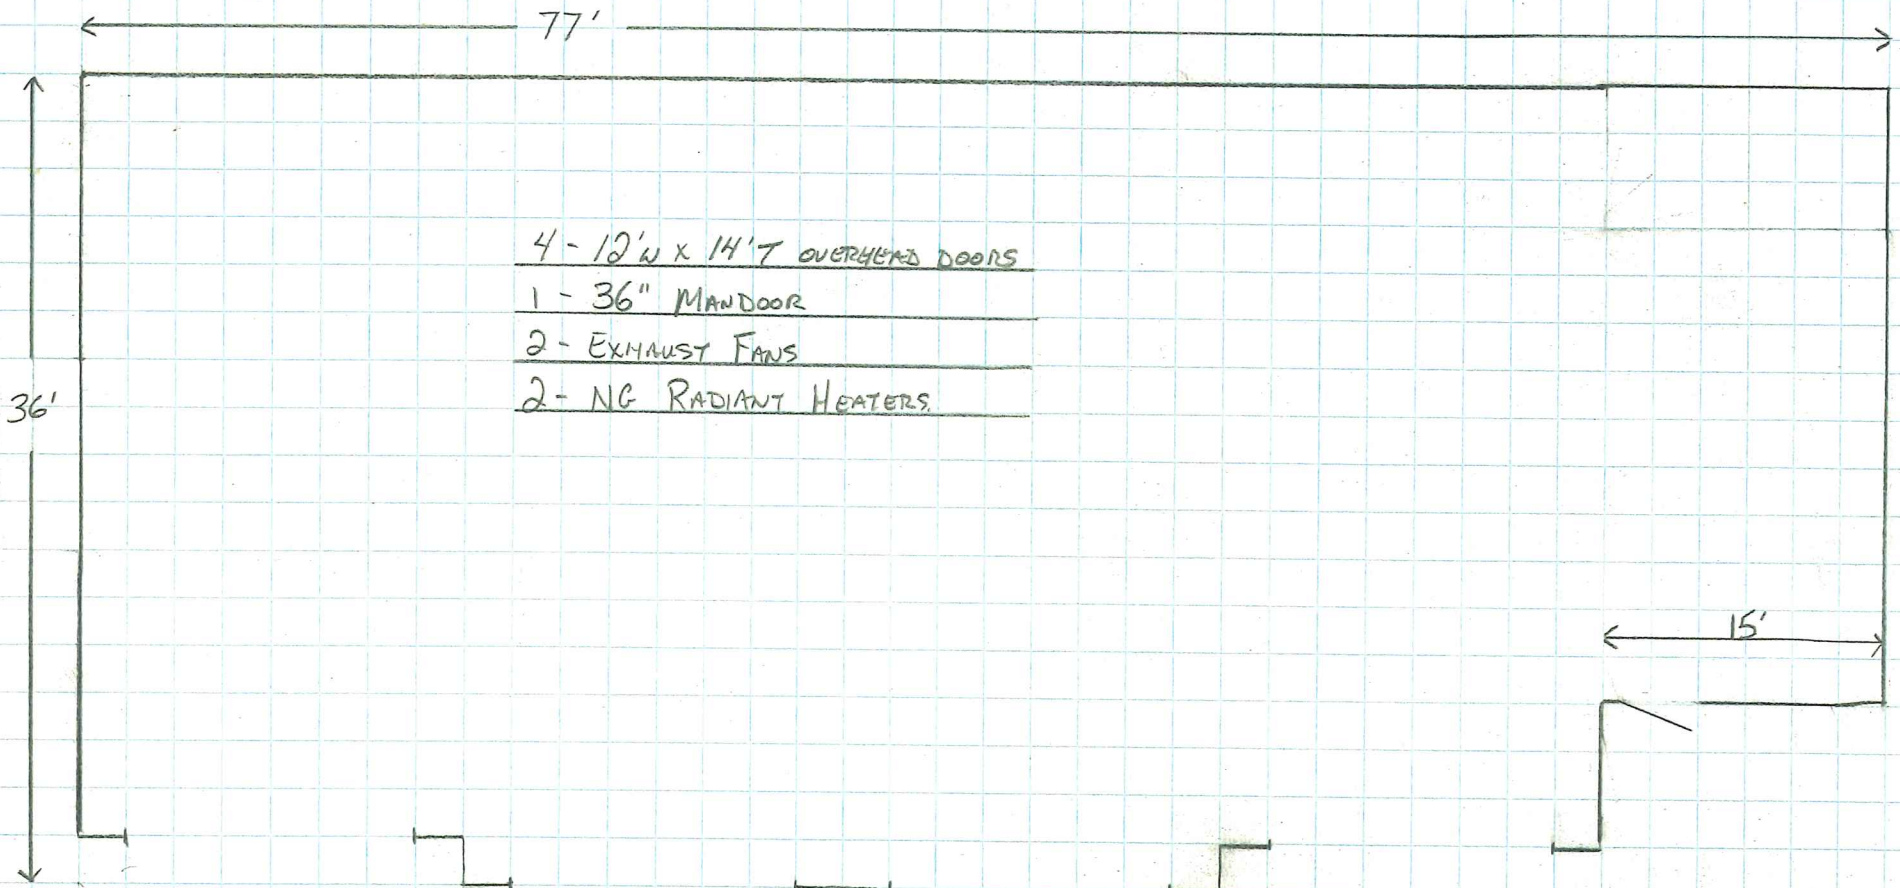 77'
4 - 12'W X 14'T OVERHEAD DOORS
1 - 36" MANDOOR
2 - EXHAUST FANS
2 - NG RADIANT HEATERS.
36'
15'